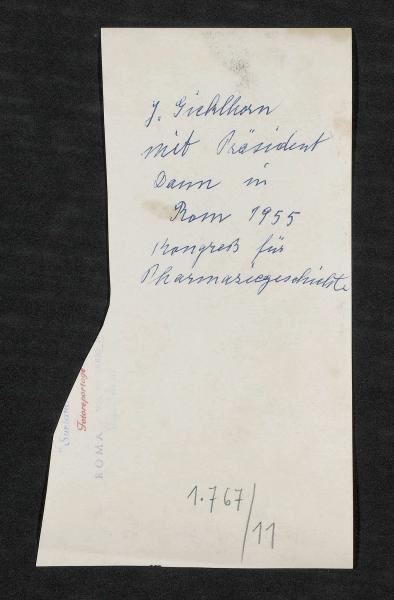 J. Gicklhorn
mit Präsident
Dann in
Rom 1955
Kongreß für
Pharmaziegeschichte
Fotoreportage
ROMA
1.767/11